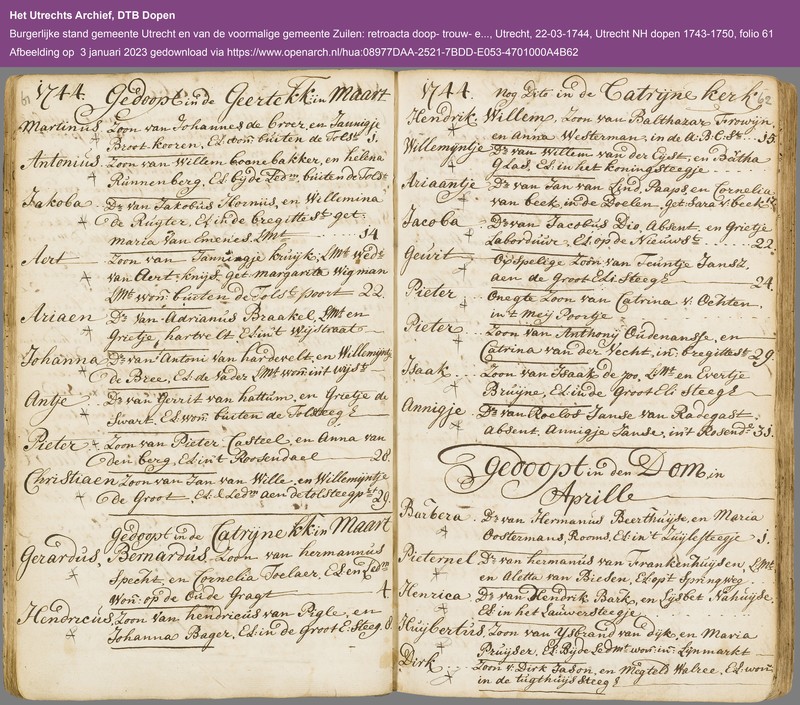 Het Utrechts Archief, DTB Dopen
Burgerlijke stand gemeente Utrecht en van de voormalige gemeente Zuilen: retroacta doop- trouw- e..., Utrecht, 22-03-1744, Utrecht NH dopen 1743-1750, folio 61
Afbeelding op 3 januari 2023 gedownload via https://www.openarch.nl/hua:08977DAA-2521-7BDD-E053-4701000A4B62
61
1744. Gedoopt in de Geerte kk in Maart
Martinus Zoon van Johannes de broer en Jannigje
Broot kooren, Ed won buiten de Tolst 1.
Antonius Zoon van Willem boonebakker, en helena
Runnenberg, Ed byde Ledm buiten de Tolst
Jakoba Dr van Jakobus Hornius, en Willemina
de Rugter, Ed in de bregitte st get
maria van Emenes, LMt 14
Aert Zoon van Jannigje kruyk, LMt Wedr
van Aert knyf, get margarita Wigman
LMt won buiten de Tolst poort 22.
Ariaen Dr van Adrianus Braakel, LMt en
Grietje hartvelt Ed int Wijstraat
Johanna Dr van Antoni van hardevelt, en Willemyntje
de Bree, Ed de vader LMt won int wyst
Antje Dr van Gerrit van hattum, en Grietje de
Swart, Ed won buiten de Tolsteegt
Pieter Zoon van Pieter Casteel, en Anna van
den berg, Ed int Roosendael 28.
Christiaen Zoon van Jan van Wille, en Willemyntje
de Groot, Ed Ledm aen de tolsteegpt 29.
Gedoopt in de Catryne kk in Maart
Gerardus Bernardus, Zoon van hermannus
Specht, en Cornelia Toelaer, Ed en Ledm
Won op de Oude Gragt 4.
Hendricus, Zoon van hendricus van Pigle, en
Johanna Bager, Ed in de Groot E. Steeg. 8.
62
1744. nog Dito in de Catryne kerk
Hendrik Willem, Zoon van Balthazar Frowijn
en Anna Westerman, in de A.B.C. st 15.
Willemijntje Dr van Willem van der Eyst, en Batha
Glas, Ed in het koningsteegje
Ariaantje Dr van Jan van Lind Paaps, en Cornelia
van beek in de Doelen, get Sara v beek 17.
Jacoba Dr van Jacobus Dio, Absent, en Grietje
Laborduur, Ed op de Nieuwst 22.
Gewit Onspelige Zoon van Teuntje Jansz,
aen de Groot Eli Steegt 24.
Pieter Onegte Zoon van Catrina v. Ochten,
int Meij Poortje
Pieter Zoon van Anthony Oudenansse, en
Catrina van der Vecht, in bregittest 29.
Isaak Zoon van Isaak de po, LMt en Evertje
Bruijne, Ed in de Groot Eli Steegt
Annigje Dr van Roelof Janse van Radegast,
absent, Annigje Janse, int Rosendl 31.
Gedoopt in den Dom in
Aprille
Barbera Dr van Hermanus Beerthuyse, en Maria
Oostermans, Rooms, Ed in't Zuylesteegje 1.
Pieternel Dr van hermanus van Frankenhuijsen, LMt
en Aletta van Biesen, Ed opt Springweg
Henrica Dr van Hendrik Bark, en Lysbet Nahuijse,
Ed in het Lauwersteegje
Huijbertus, Zoon van Ysbrand van dijk, en Maria
Pruijser, Ed Byde Ledmt won in Lijnmarkt
Dirk Zoon v. Dirk Jason, en Megteld Walree, Ed won
in de tugthuijs Steegt